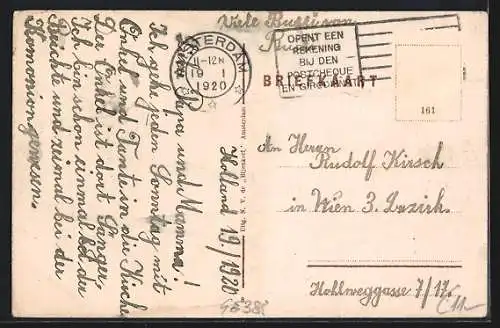 Viele Bussi von
Rudi
AMSTERDAM
11-12N
19 1
1920
OPENT EEN
REKENING
BIJ DEN
POSTCHEQUE
EN GIRODIENST
BRIEFKAART
161
Holland 19./1 920
Papa und Mamma!
Ich gehe jeden Sonntag mit
Onkel und Tante in die Kirche
Der Onkel ist dort Sänger.
Ich bin schon einmal bei der
Beichte und zwimal bei der
Komonion gewesen.
Uitg. N. V. de „Rijnkaert." Amsterdam
An Herrn
Rudolf Kirsch
in Wien 3. Bezirk.
Hohlweggasse 7/17.